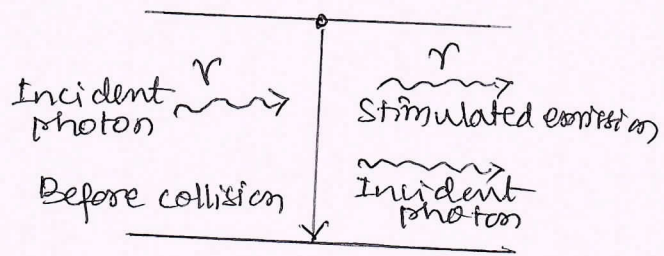 γ
Incident
photon
Before collision
γ
Stimulated emission
Incident
photon